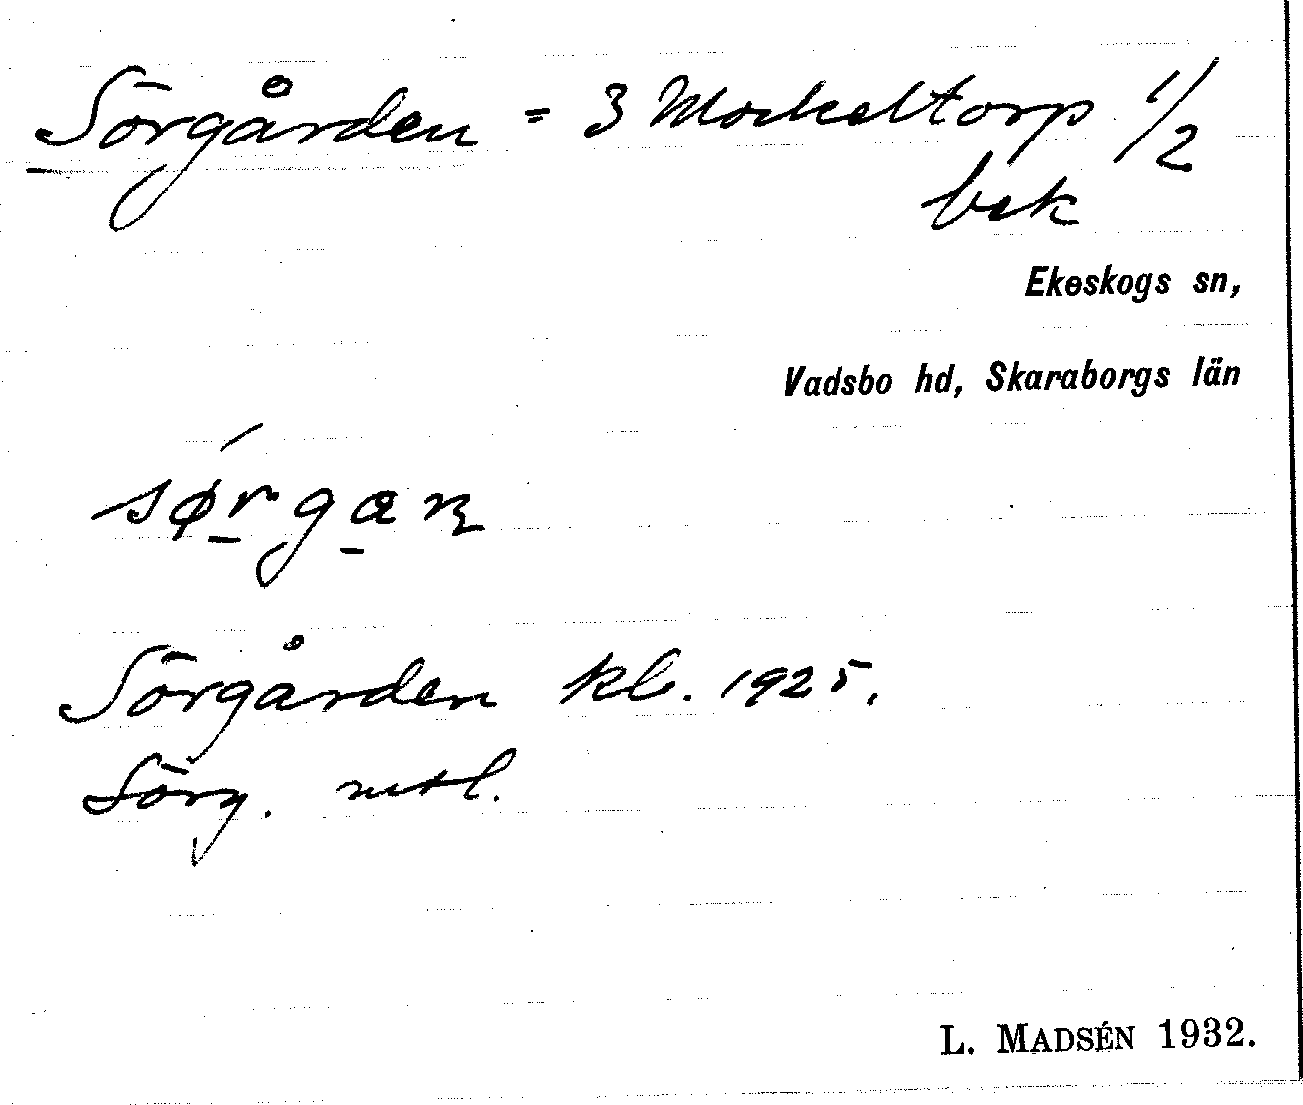 Sörgården = 3 Mockeltorp 1/2
bsk
Ekeskogs sn,
Vadsbo hd, Skaraborgs län
Sörgården kl. 1925.
Sörg. mtl.
L. MADSÉN 1932.